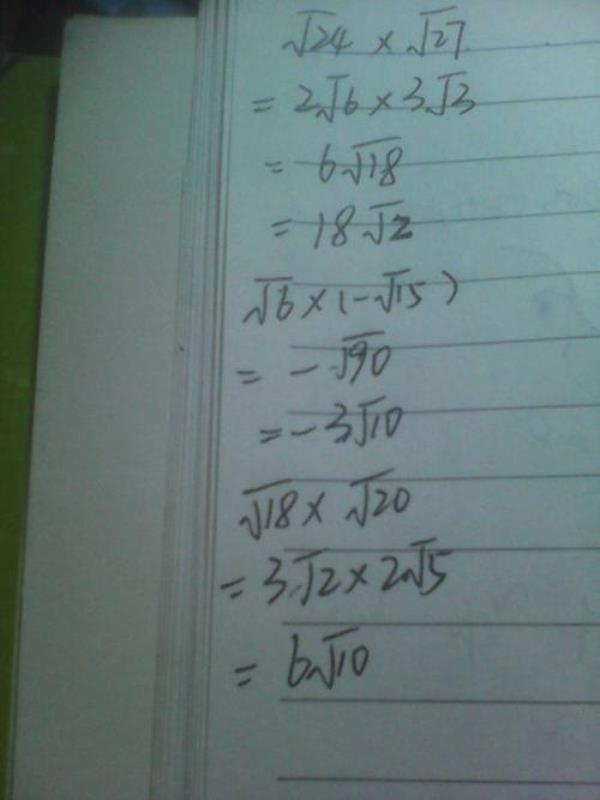 √24 × √27
= 2√6 × 3√3
= 6√18
= 18√2
√6 × (-√15)
= -√90
= -3√10
√18 × √20
= 3√2 × 2√5
= 6√10